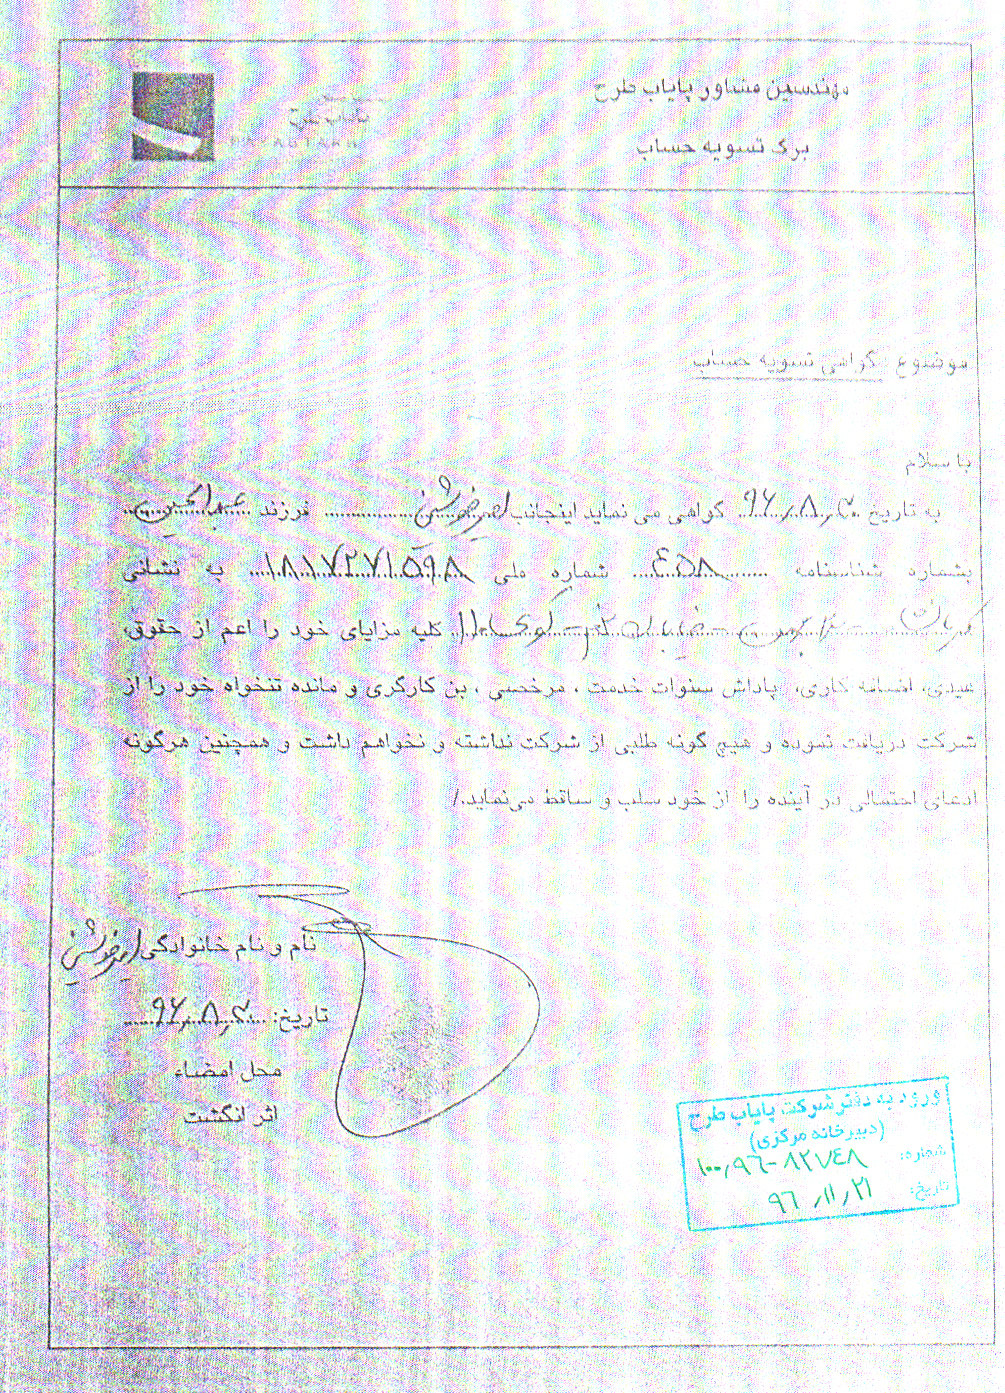 مهندسین مشاور پایاب طرح
برگ تسویه حساب
پایاب طرح
PAYABTARH
موضوع : گواهی تسویه حساب
با سلام
به تاریخ ۹۶٫۸٫۳۰ گواهی می نماید اینجانب فرزند عبدالحسین
بشماره شناسنامه ۴۵۸ شماره ملی ۱۸۱۷۲۷۱۵۹۸ به نشانی
کرمان - خیابان - کوی ۱۱ کلیه مزایای خود را اعم از حقوق،
عیدی، اضافه کاری، پاداش سنوات خدمت ، مرخصی ، بن کارگری و مانده تنخواه خود را از
شرکت دریافت نموده و هیچ گونه طلبی از شرکت نداشته و نخواهم داشت و همچنین هرگونه
ادعای احتمالی در آینده را از خود سلب و ساقط می‌نماید./
نام و نام خانوادگی
تاریخ: ۹۶٫۸٫۳۰
محل امضاء
اثر انگشت
ورود به دفتر شرکت پایاب طرح
(دبیرخانه مرکزی)
شماره: ۱۰۰٫۹۶-۸۲۷۴۸
تاریخ: ۹۶٫۱۱٫۲۱